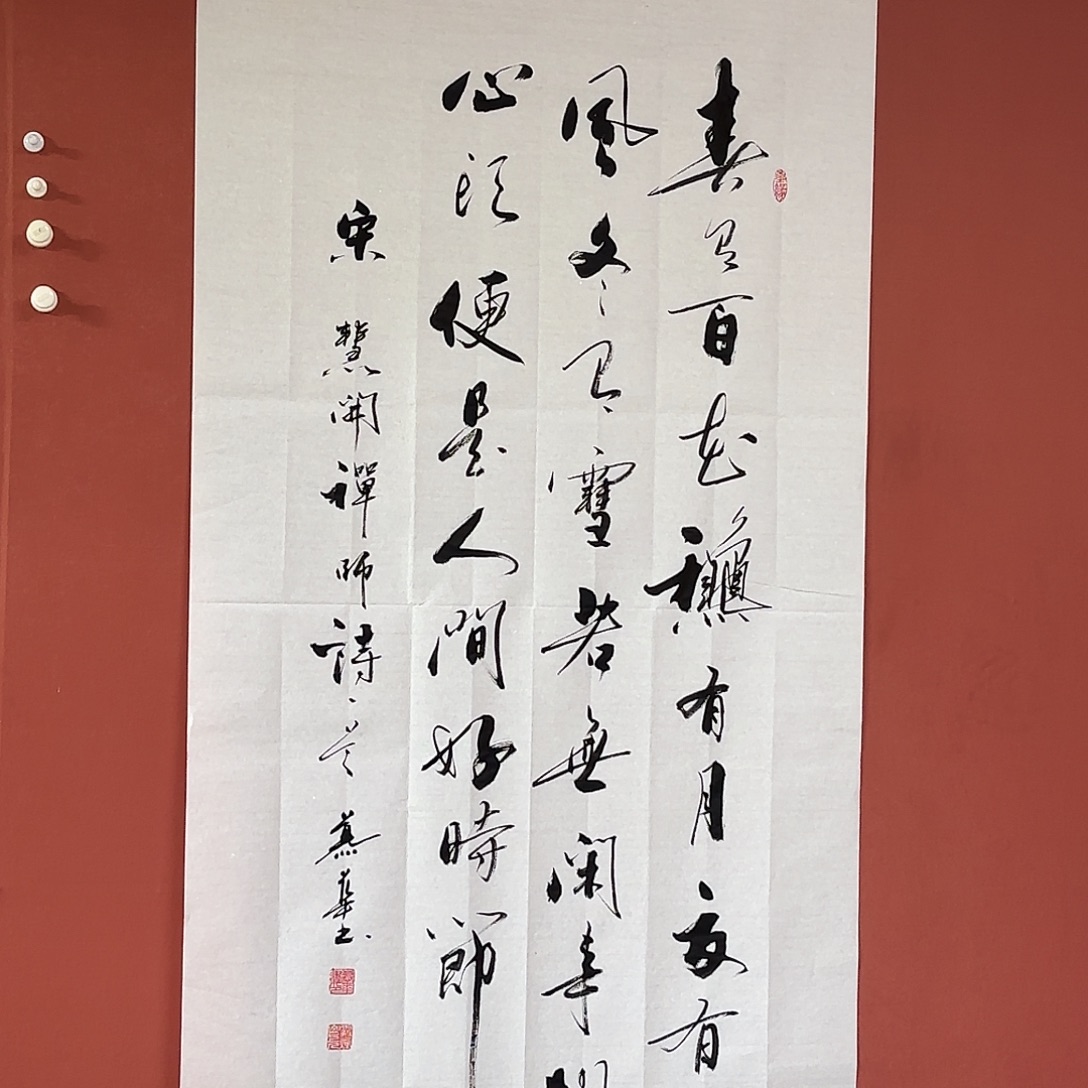 春有百花龝有月夏有
風冬有雪若無閑事
心頭便是人間好時節
宋慧開禪師詩